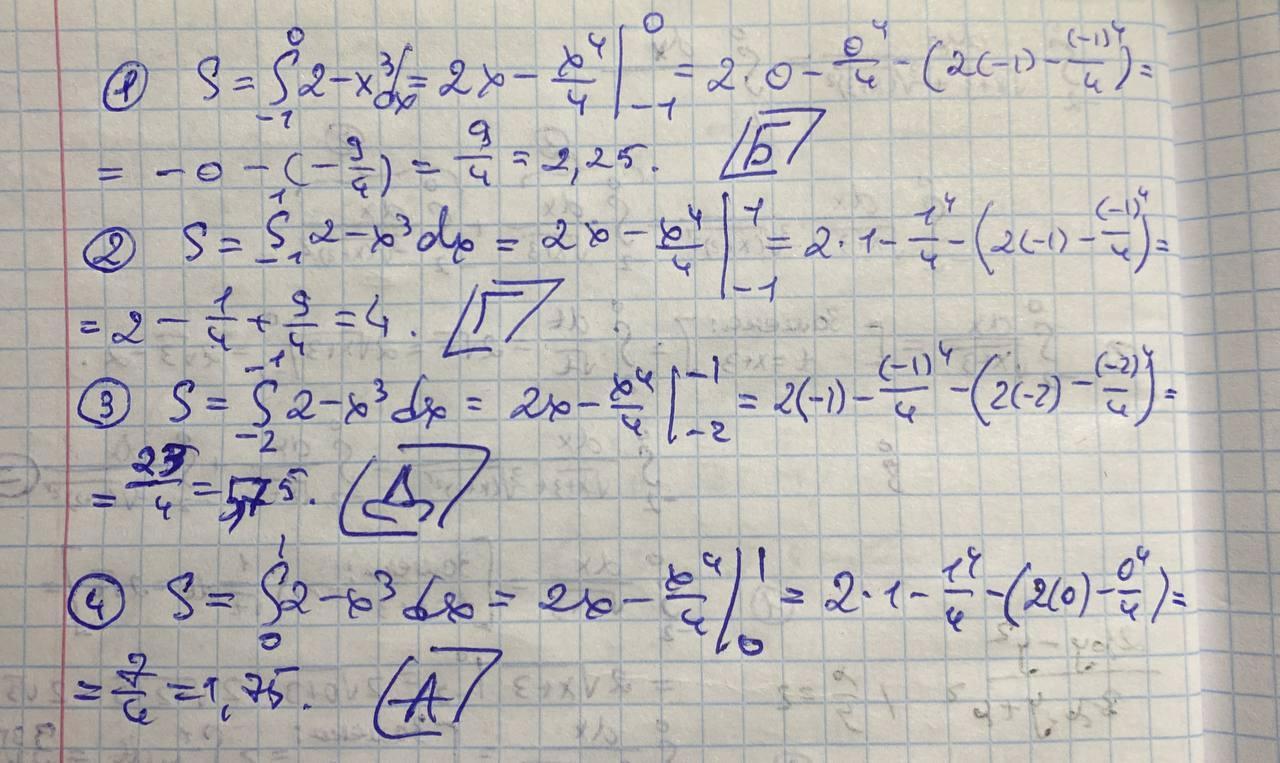 ① S = ∫₋₁⁰ 2 − x³ dx = 2x − x⁴/4 |₋₁⁰ = 2·0 − 0⁴/4 − (2(−1) − (−1)⁴/4) =
= −0 − (−9/4) = 9/4 = 2,25. Б
② S = ∫₋₁¹ 2 − x³ dx = 2x − x⁴/4 |₋₁¹ = 2·1 − 1⁴/4 − (2(−1) − (−1)⁴/4) =
= 2 − 1/4 + 9/4 = 4. Г
③ S = ∫₋₂⁻¹ 2 − x³ dx = 2x − x⁴/4 |₋₂⁻¹ = 2(−1) − (−1)⁴/4 − (2(−2) − (−2)⁴/4) =
= 23/4 = 5,75. Д
④ S = ∫₀¹ 2 − x³ dx = 2x − x⁴/4 |₀¹ = 2·1 − 1⁴/4 − (2(0) − 0⁴/4) =
= 7/4 = 1,75. А